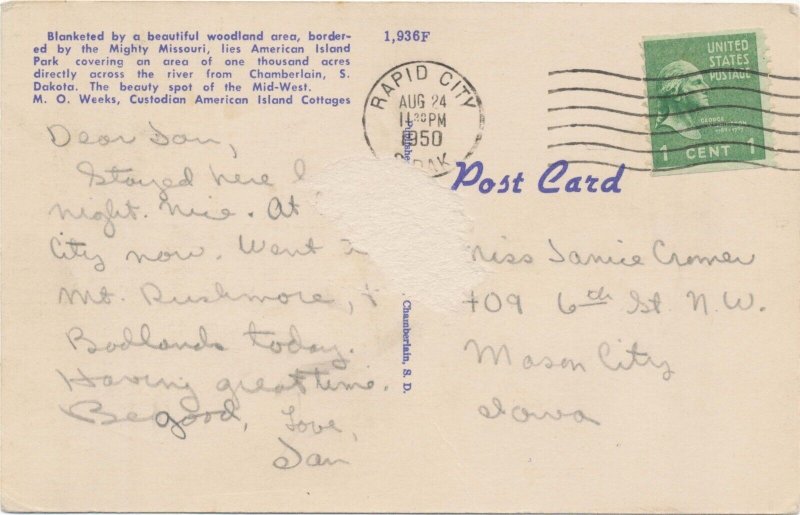 Blanketed by a beautiful woodland area, border-
ed by the Mighty Missouri, lies American Island
Park covering an area of one thousand acres
directly across the river from Chamberlain, S.
Dakota. The beauty spot of the Mid-West.
M. O. Weeks, Custodian American Island Cottages
1,936F
RAPID CITY
AUG 24
11 30 PM
1950
DAK
UNITED
STATES
POSTAGE
GEORGE
1 CENT 1
Post Card
Publishe
Chamberlain, S. D.
Dear Jan,
Stayed here
night. Nice. At
City now. Went
Mt. Rushmore, +
Badlands today.
Having great time.
Be good, Love,
Jan
Miss Janice Cromer
409 6th St. N.W.
Mason City
Iowa